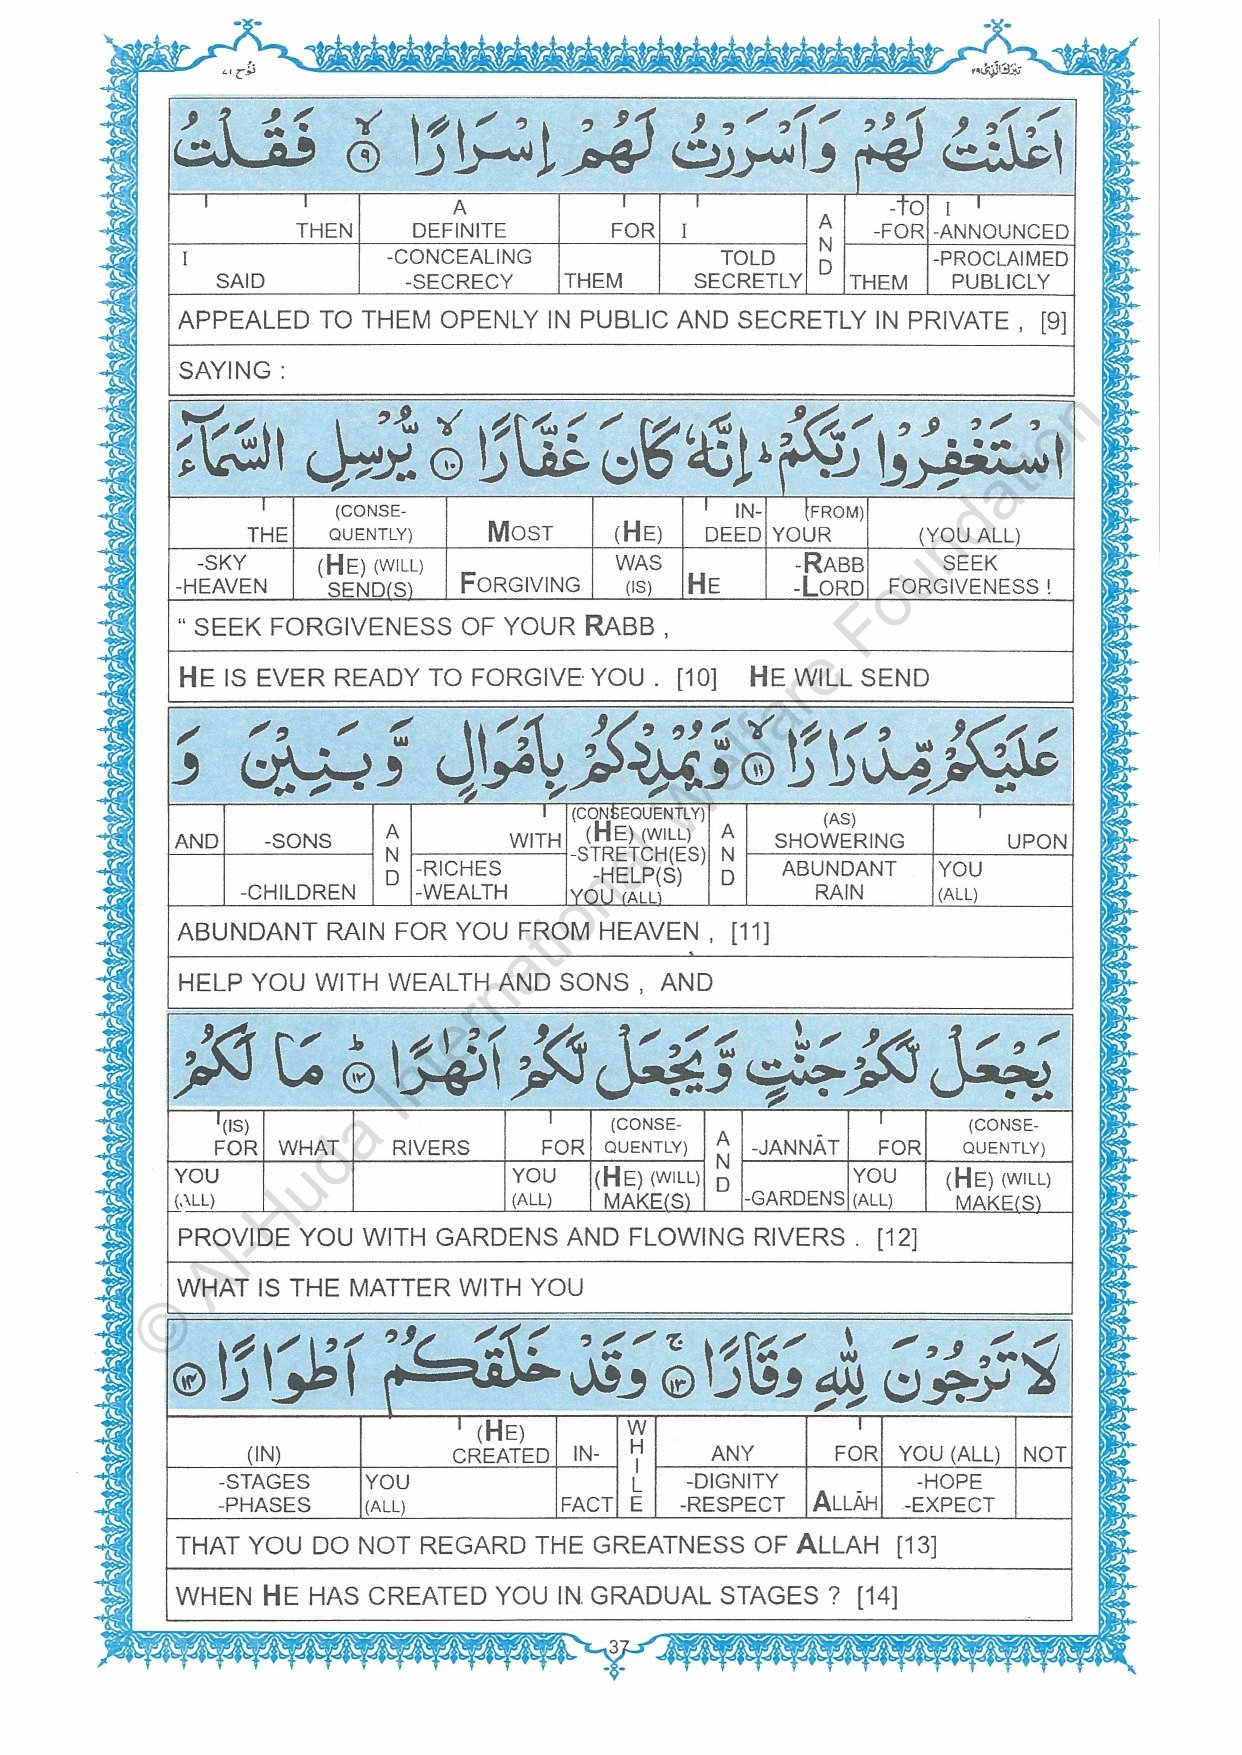 نُوح ٧١
تبٰرك الّذى ٢٩
اَعْلَنْتُ لَهُمْ وَاَسْرَرْتُ لَهُمْ اِسْرَارًا ۙ ٩ فَقُلْتُ
THEN A DEFINITE FOR I AND -TO -FOR I -ANNOUNCED
I SAID -CONCEALING -SECRECY THEM TOLD SECRETLY THEM -PROCLAIMED PUBLICLY
APPEALED TO THEM OPENLY IN PUBLIC AND SECRETLY IN PRIVATE , [9]
SAYING :
اسْتَغْفِرُوْا رَبَّكُمْ ؕ اِنَّهٗ كَانَ غَفَّارًا ۙ ١٠ يُّرْسِلِ السَّمَآءَ
THE (CONSE-QUENTLY) MOST (HE) IN-DEED YOUR (FROM) (YOU ALL)
-SKY -HEAVEN (HE) (WILL) SEND(S) FORGIVING WAS (IS) HE -RABB -LORD SEEK FORGIVENESS !
“ SEEK FORGIVENESS OF YOUR RABB ,
HE IS EVER READY TO FORGIVE YOU . [10] HE WILL SEND
عَلَيْكُمْ مِّدْرَارًا ۙ ١١ وَّيُمْدِدْكُمْ بِاَمْوَالٍ وَّبَنِيْنَ وَ
AND -SONS AND WITH (CONSEQUENTLY) (HE) (WILL) -STRETCH(ES) AND (AS) SHOWERING UPON
-CHILDREN -RICHES -WEALTH -HELP(S) YOU (ALL) ABUNDANT RAIN YOU (ALL)
ABUNDANT RAIN FOR YOU FROM HEAVEN , [11]
HELP YOU WITH WEALTH AND SONS , AND
يَجْعَلْ لَّكُمْ جَنّٰتٍ وَّيَجْعَلْ لَّكُمْ اَنْهٰرًا ؕ ١٢ مَا لَكُمْ
(IS) FOR WHAT RIVERS FOR (CONSE-QUENTLY) AND -JANNĀT FOR (CONSE-QUENTLY)
YOU (ALL) YOU (ALL) (HE) (WILL) MAKE(S) -GARDENS YOU (ALL) (HE) (WILL) MAKE(S)
PROVIDE YOU WITH GARDENS AND FLOWING RIVERS . [12]
WHAT IS THE MATTER WITH YOU
لَا تَرْجُوْنَ لِلّٰهِ وَقَارًا ۚ ١٣ وَقَدْ خَلَقَكُمْ اَطْوَارًا ١٤
(IN) (HE) CREATED IN- WHILE ANY FOR YOU (ALL) NOT
-STAGES -PHASES YOU (ALL) FACT -DIGNITY -RESPECT ALLĀH -HOPE -EXPECT
THAT YOU DO NOT REGARD THE GREATNESS OF ALLAH [13]
WHEN HE HAS CREATED YOU IN GRADUAL STAGES ? [14]
37
© Al-Huda International Welfare Foundation